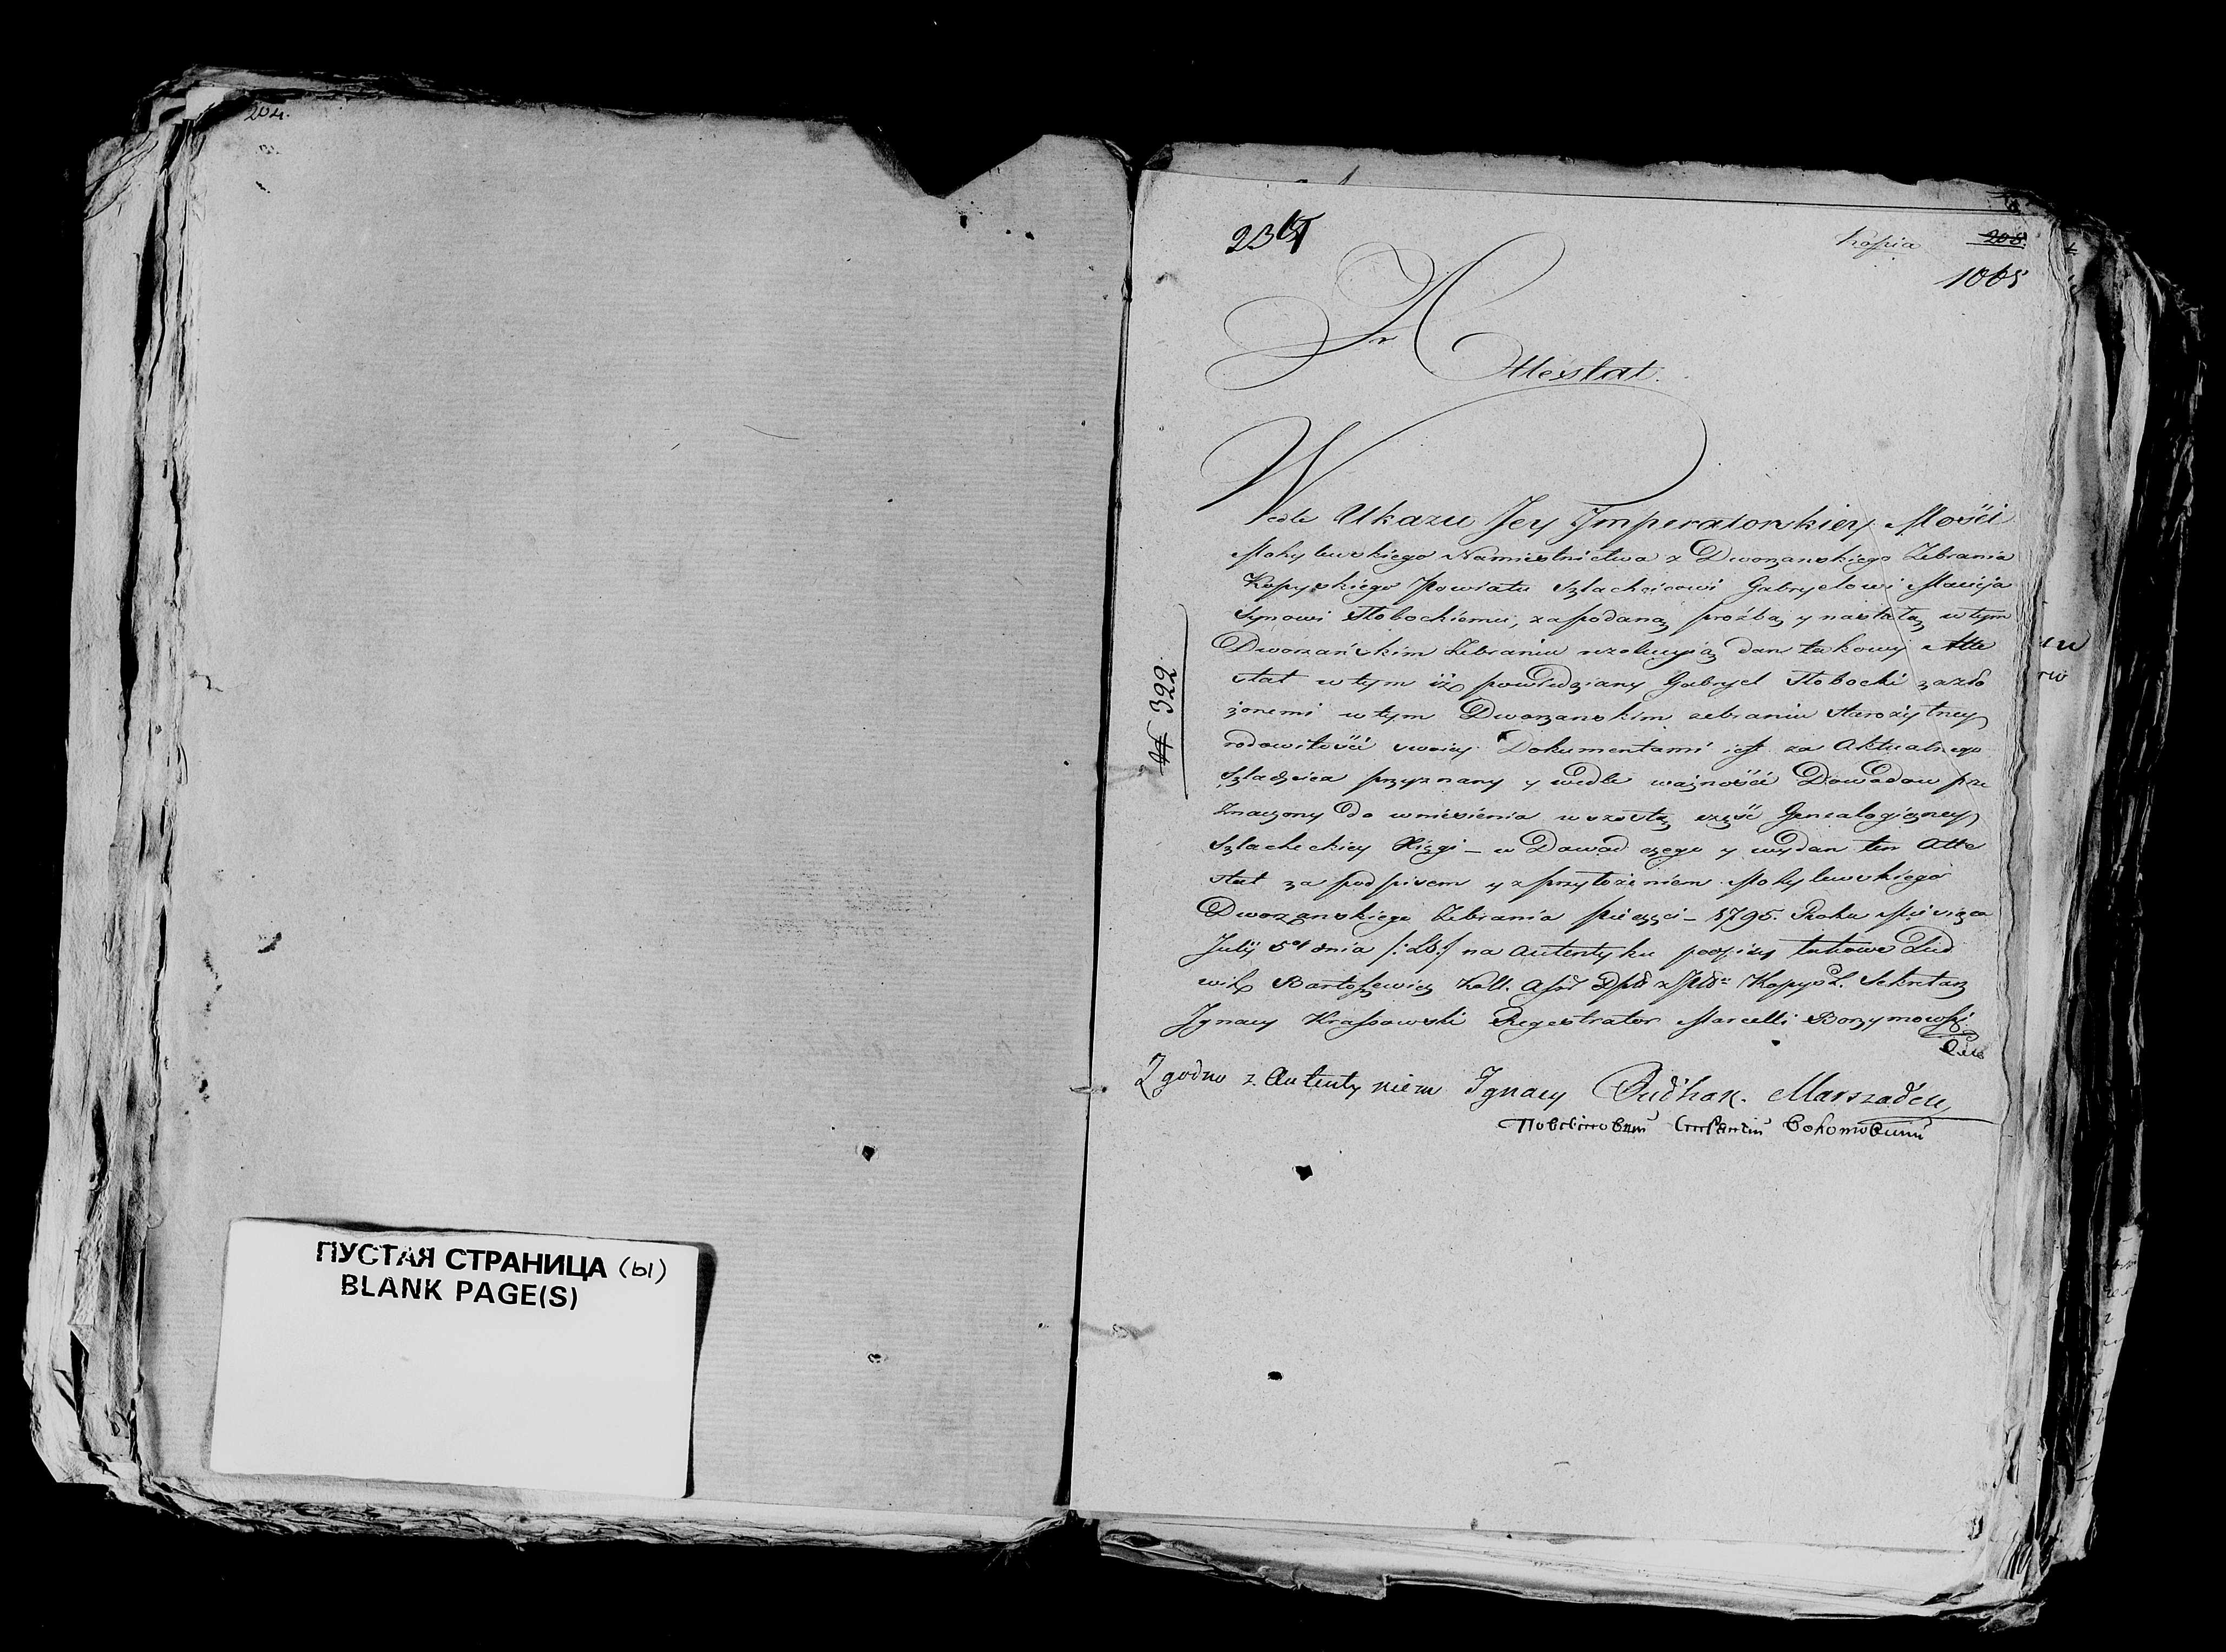 204.
ПУСТАЯ СТРАНИЦА (ы)
BLANK PAGE(S)
Kopia
205.
1065
Attestat.
№ 322.
Wedle Ukazu Jey Imperatorskiey Mości
Mohylewskiego Namiestnictwa z Dworzanskiego Zebrania
Kopyskiego Powiatu Szlachcicowi Gabryelowi Macieja
Synowi Słobockiemu, za podaną prożbą y nastałą w tym
Dworzańskim Zebraniu rezolucyią dan takowy Atte
stat w tym iż powiedziany Gabryel Słobocki zazło
żonemi w tym Dworzanskim zebraniu starożytney
rodowitości swoiey Dokumentami jest za Aktualnego
Szlachcica przyznany y wedle ważności Dowodow prze
znaczony do wniesienia w szostą część Genealogiczney
Szlacheckiey Xięgi - w Dowod czego y wydan ten Atte
stat za podpisem y z przyłożeniem Mohylewskiego
Dworzanskiego Zebrania pieczęci - 1795. Roku Miesiąca
Julij 5º dnia /:LS:/ na Autentyku podpisy takowe Lud
wik Bartoszewicz Koll. Kopys. Sekretarz
Ignacy Krassowski Regestrator Marcelli Borzymowski
Zgodno z Autentykiem Ignacy Marszałek